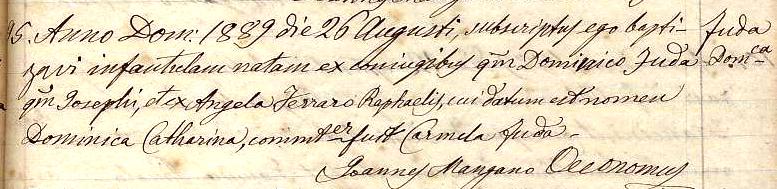 95. Anno Dom: 1889 die 26 Augusti, subscriptus ego bapti- Juda
zavi infantulam natam ex coniugibus qm Dominico Juda Domca
qm Josephi, et ex Angela Ferraro Raphaelis, cui datum est nomen
Dominica Catharina, commter fuit Carmela Juda.
Joannes Mangano Oeconomus